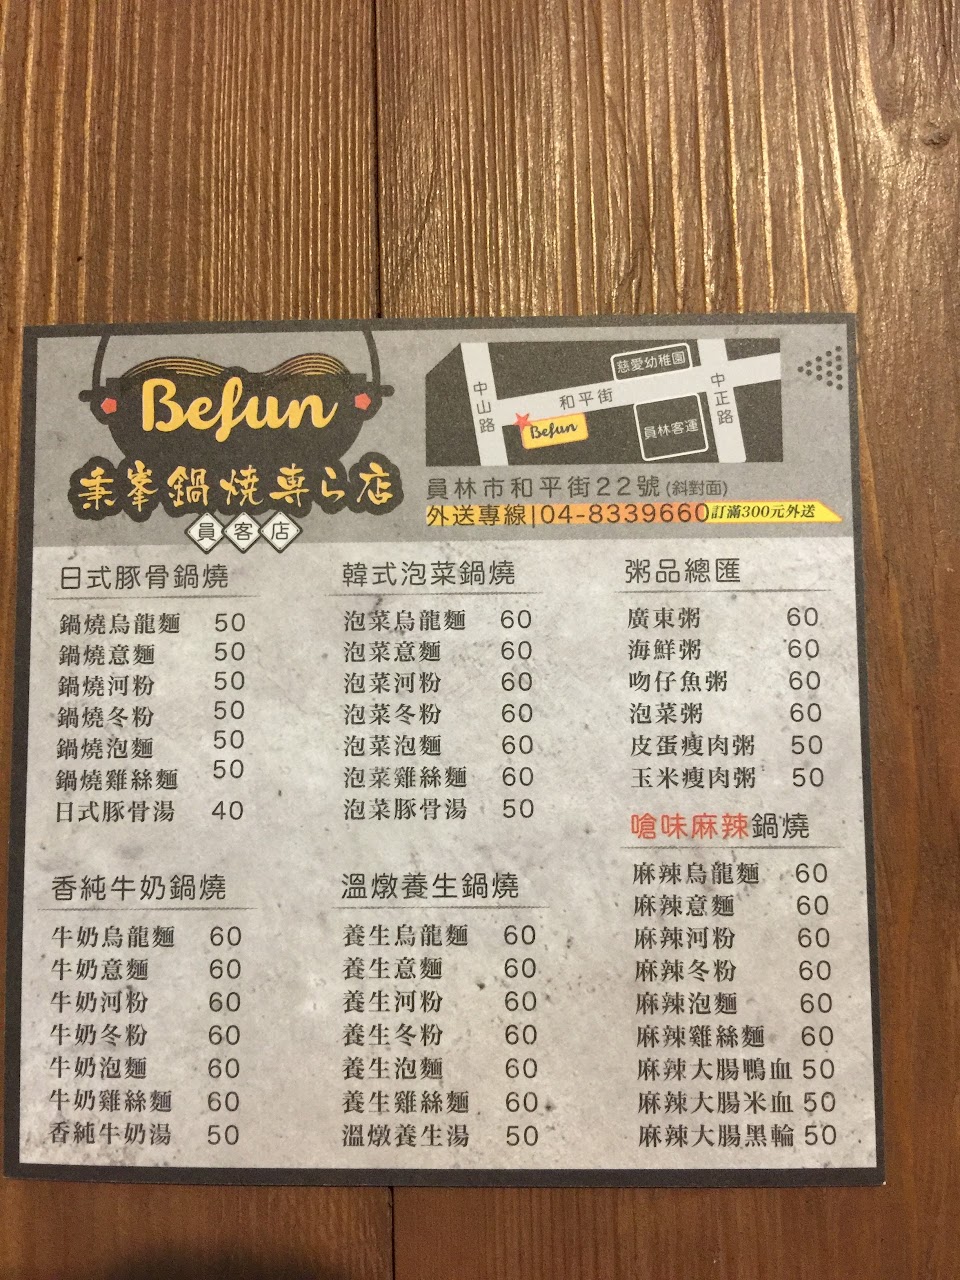 Befun
秉峯鍋燒専ら店
員客店
慈愛幼稚園
中山路
和平街
中正路
Befun
員林客運
員林市和平街22號(斜對面)
外送專線|04-8339660訂滿300元外送
日式豚骨鍋燒
鍋燒烏龍麵 50
鍋燒意麵 50
鍋燒河粉 50
鍋燒冬粉 50
鍋燒泡麵 50
鍋燒雞絲麵 50
日式豚骨湯 40
韓式泡菜鍋燒
泡菜烏龍麵 60
泡菜意麵 60
泡菜河粉 60
泡菜冬粉 60
泡菜泡麵 60
泡菜雞絲麵 60
泡菜豚骨湯 50
粥品總匯
廣東粥 60
海鮮粥 60
吻仔魚粥 60
泡菜粥 60
皮蛋瘦肉粥 50
玉米瘦肉粥 50
香純牛奶鍋燒
牛奶烏龍麵 60
牛奶意麵 60
牛奶河粉 60
牛奶冬粉 60
牛奶泡麵 60
牛奶雞絲麵 60
香純牛奶湯 50
溫燉養生鍋燒
養生烏龍麵 60
養生意麵 60
養生河粉 60
養生冬粉 60
養生泡麵 60
養生雞絲麵 60
溫燉養生湯 50
嗆味麻辣鍋燒
麻辣烏龍麵 60
麻辣意麵 60
麻辣河粉 60
麻辣冬粉 60
麻辣泡麵 60
麻辣雞絲麵 60
麻辣大腸鴨血 50
麻辣大腸米血 50
麻辣大腸黑輪 50